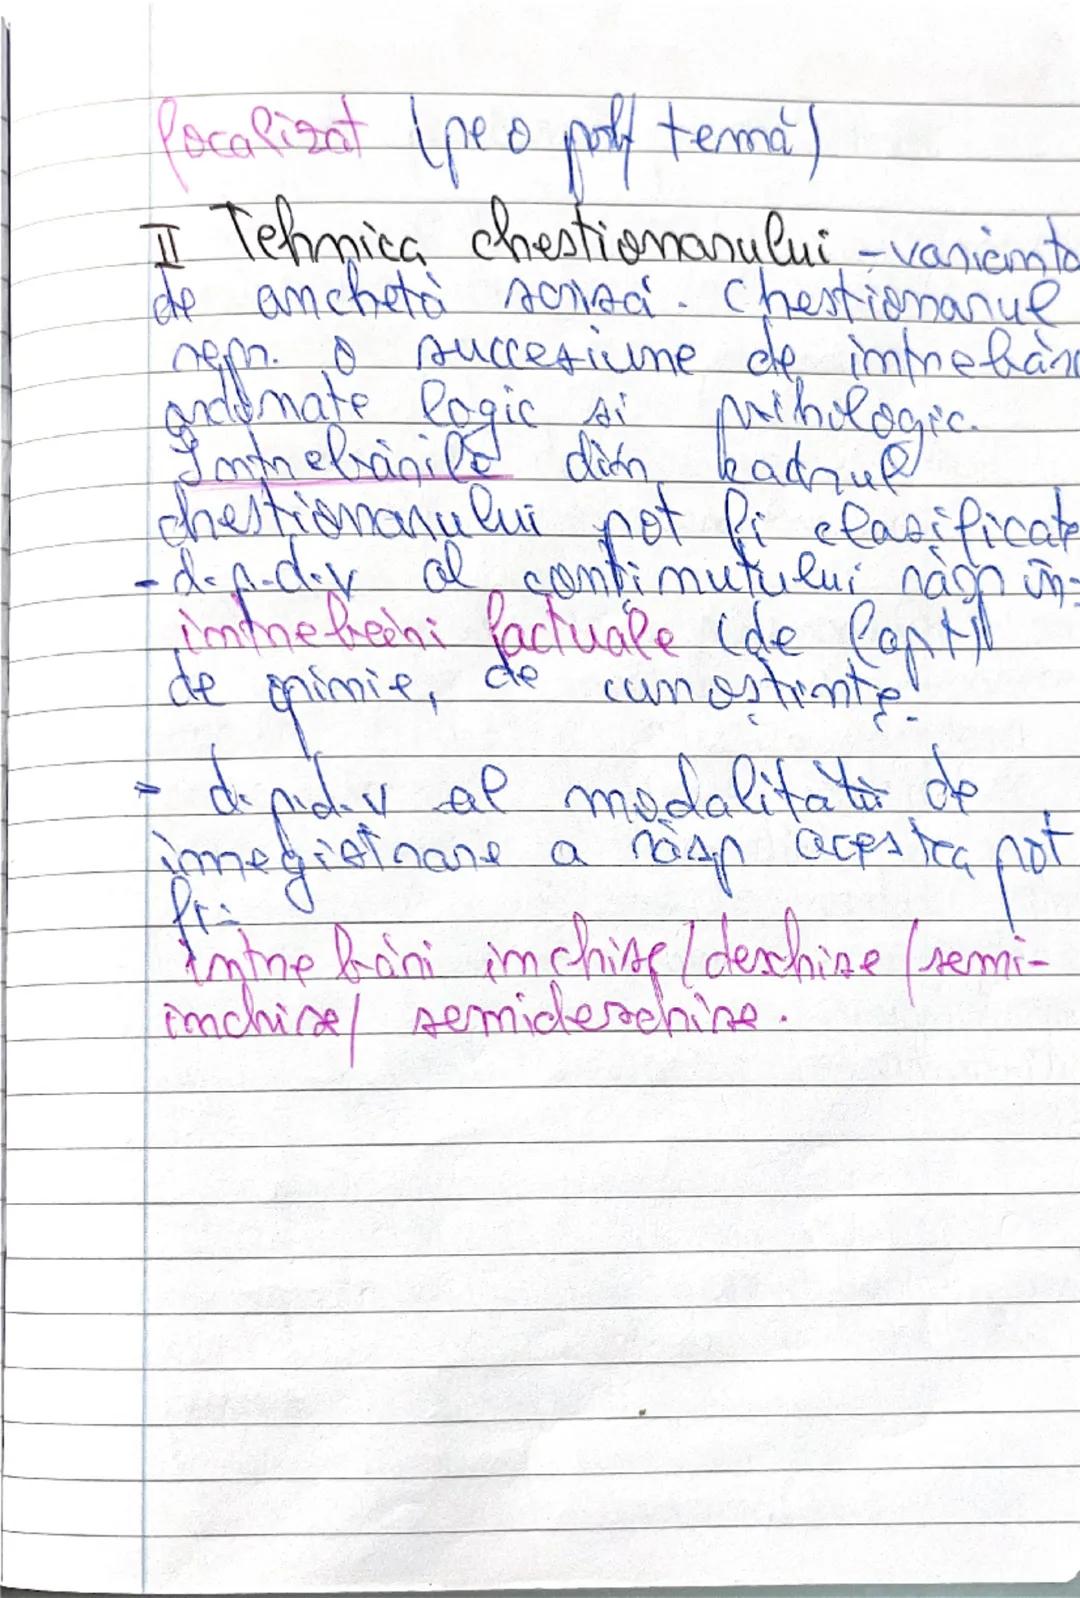 focalizat (pe o temă)
II Tehnica chestionarului - varianta
de anchetă scrisă. Chestionarul
repr. o succesiune de întrebări
ordonate logic si psihologic.
Întrebările din kadrul
chestionarului pot fi clasificate
- d.p.d.v al conținutului răsp în:
întrebări factuale (de fapt)
de opinie, de cunoștințe.
- d.p.d.v al modalității de
inregistrare a răsp acestea pot
fi:
întrebări inchise/deschise/semi-
inchise/ semideschise.